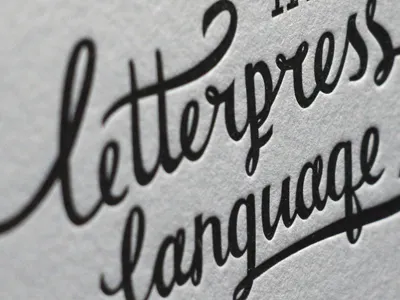 letterpress
language